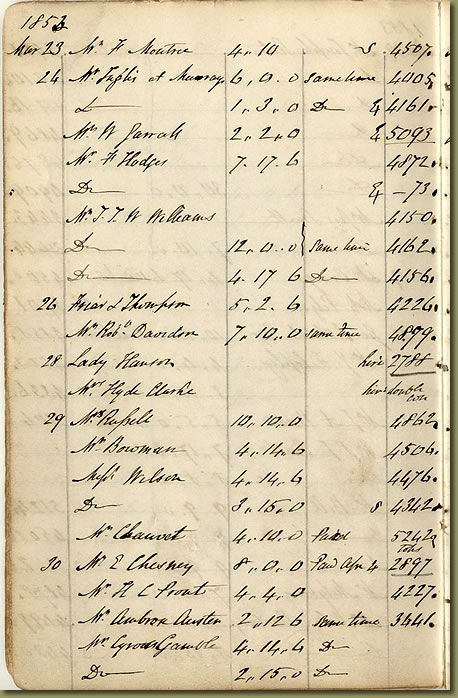 1852
Mar 23 Mr F Moutrie 4.. 10 S 4507.
24 Mr Inglis at Murray 6.. 0.. 0 same time 4005
1.. 3.. 0 Do & 4161.
Mrs W Jarrah 2.. 2.. 0 & 5093
Mr F Hodges 7. 17. 6 4872.
Do & - 73.
Mr J. T. W Williams 4150.
Do 12.. 0.. 0 same time 4162.
Do 4. 17 6 Do 4156.
26 Friar & Thompson 5.. 2. 6 4226.
Mr Robt Davidson 7.. 10.. 0 same time 4879.
28 Lady Hanson hire 2788
Hyde Clarke hire double con
29 Russell 10.. 10. 0 4862.
Mr Bowman 4.. 14. 6 4506.
Wilson 4.. 14. 6 4476.
Do 3.. 15. 0 S 4342.
Mr Chauvet 4.. 10. 0 Paid 5242
30 Mr E Chesney 8.. 0.. 0 Paid Apr 4 2897
Mr H C Prout 4.. 4. 0 4227.
Mr Ambrose Austen 2.. 12 6 same time 3441.
Mr Cyrus Gamble 4.. 14. 6 Do
Do 2.. 15. 0 Do